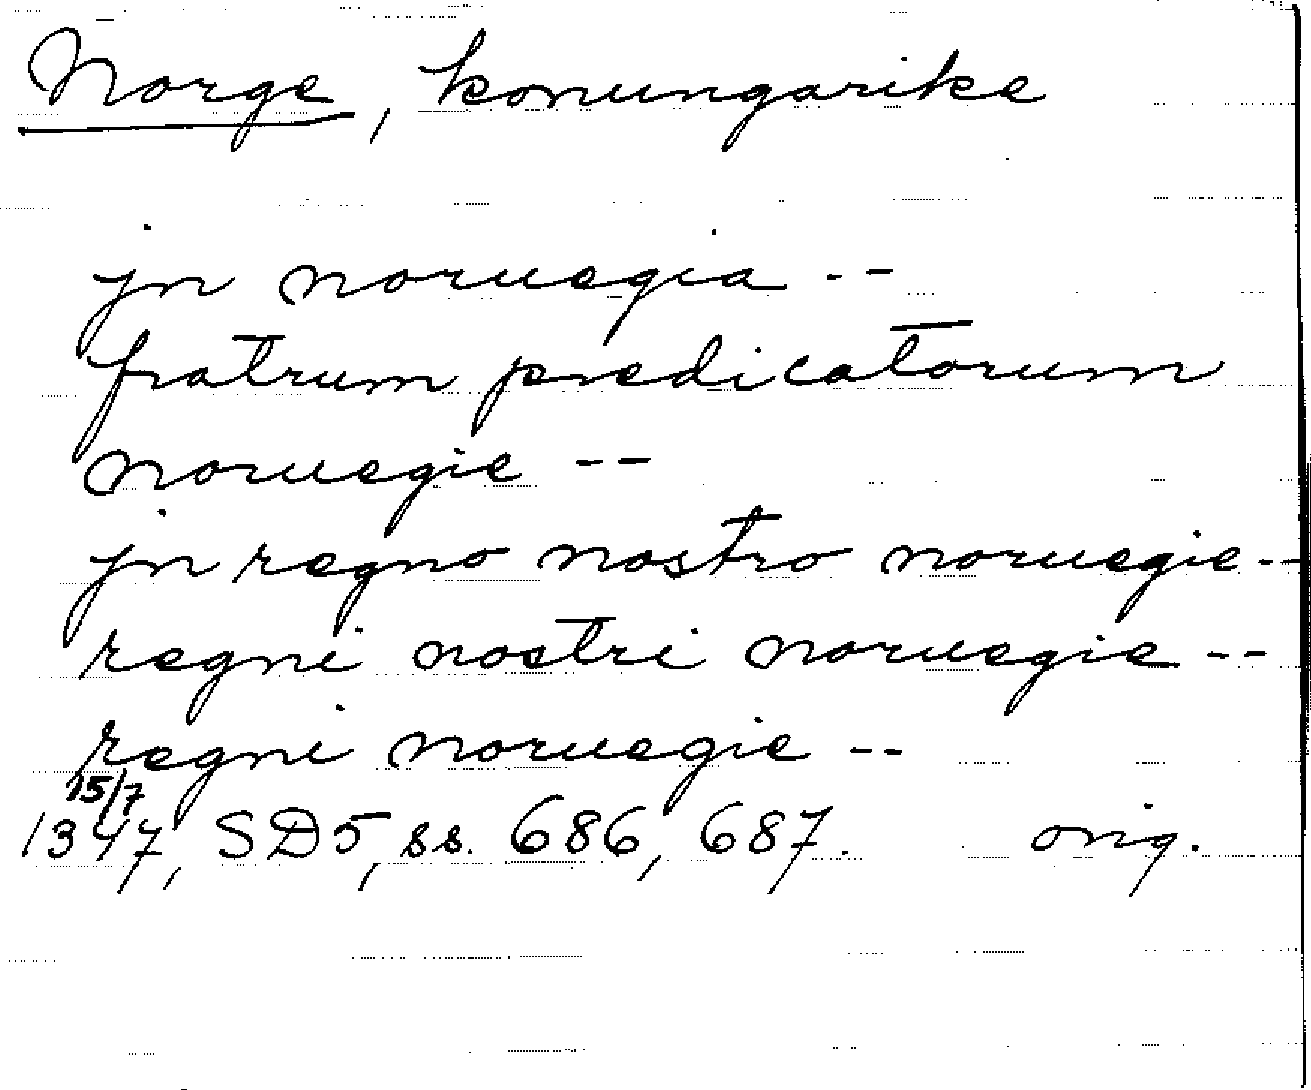 Norge, konungarike
jn noruegia --
fratrum predicatorum
noruegie --
jn regno nostro noruegie --
regni nostri noruegie --
regni noruegie --
15/7
1347, SD5, ss. 686, 687. orig.